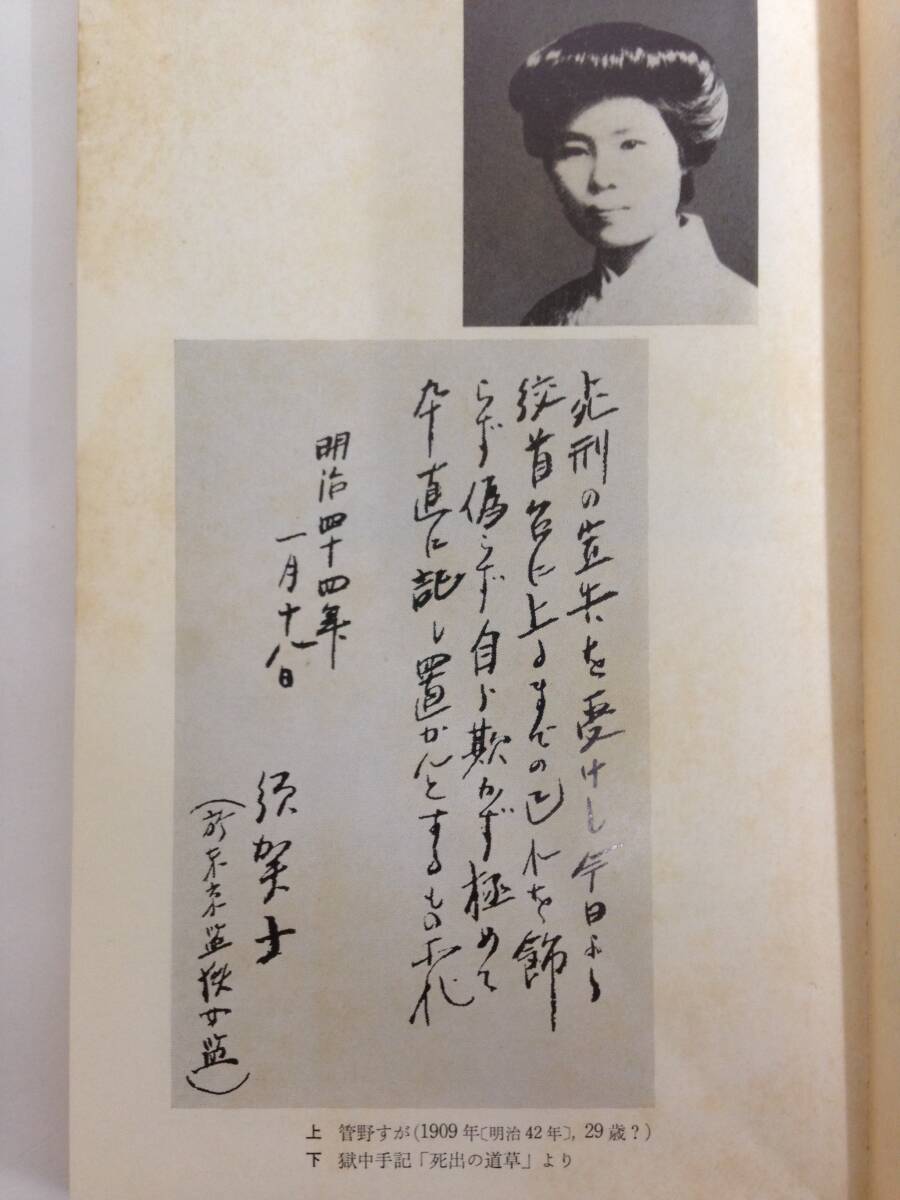 死刑の宣告を受けし今日より
絞首台に上るまでの己れを飾
らず偽らず自ら欺かず極めて
卆直に記し置かんとするもの是れ
明治四十四年
一月十八日
須賀子
(於東京監獄女監)
上 管野すが(1909年〔明治42年〕,29歳?)
下 獄中手記「死出の道草」より